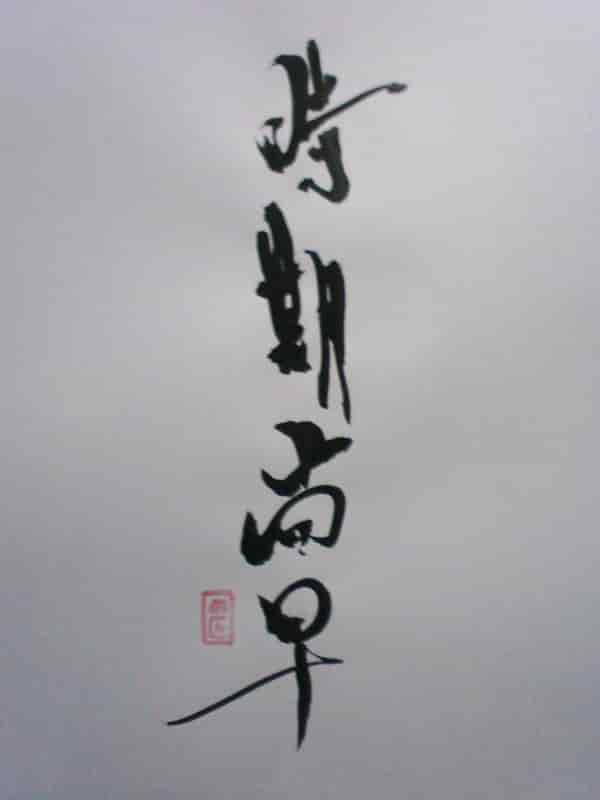 時期尚早